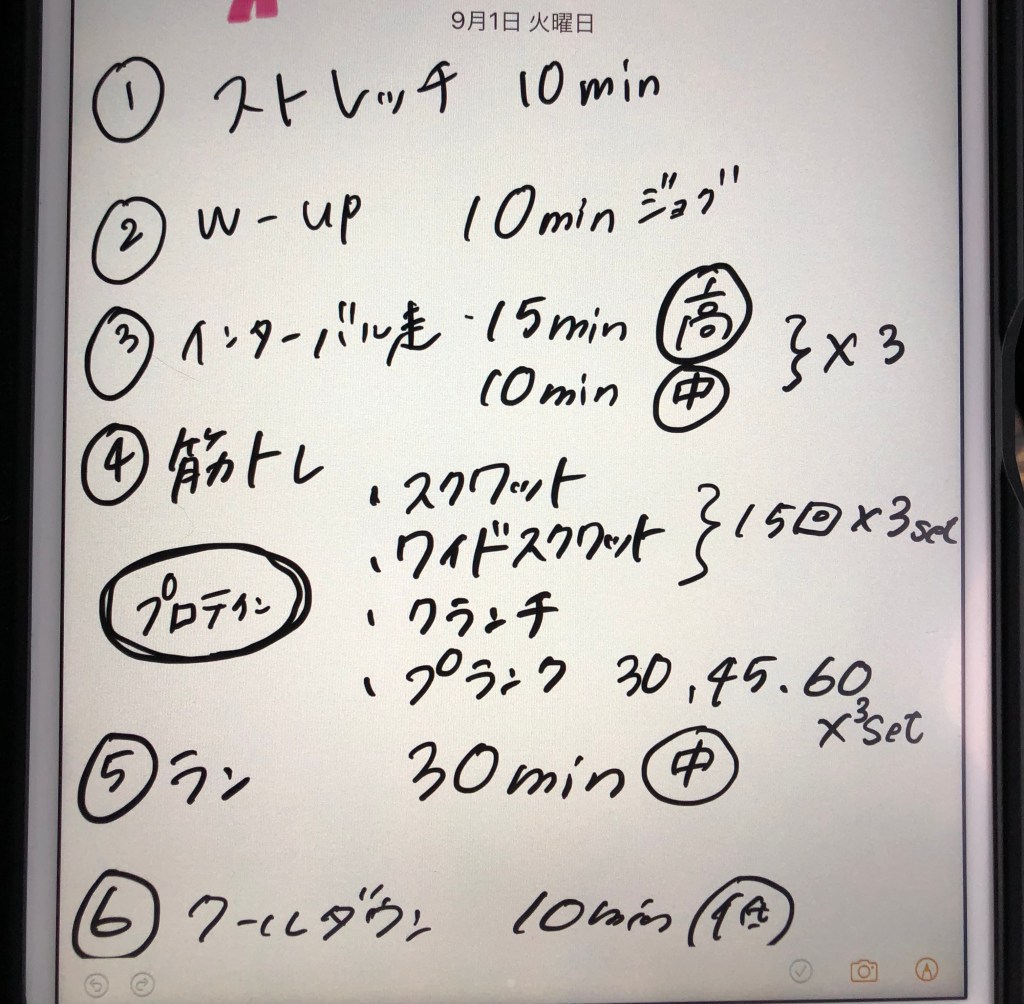 9月1日 火曜日
① ストレッチ 10min
② W-up 10min ジョグ
③ インターバル走 ・15min 高 } × 3
10min 中
④ 筋トレ
・スクワット
・ワイドスクワット } 15回×3set
プロテイン
・クランチ
・プランク 30, 45. 60
×3set
⑤ ラン 30min 中
⑥ クールダウン 10min 低